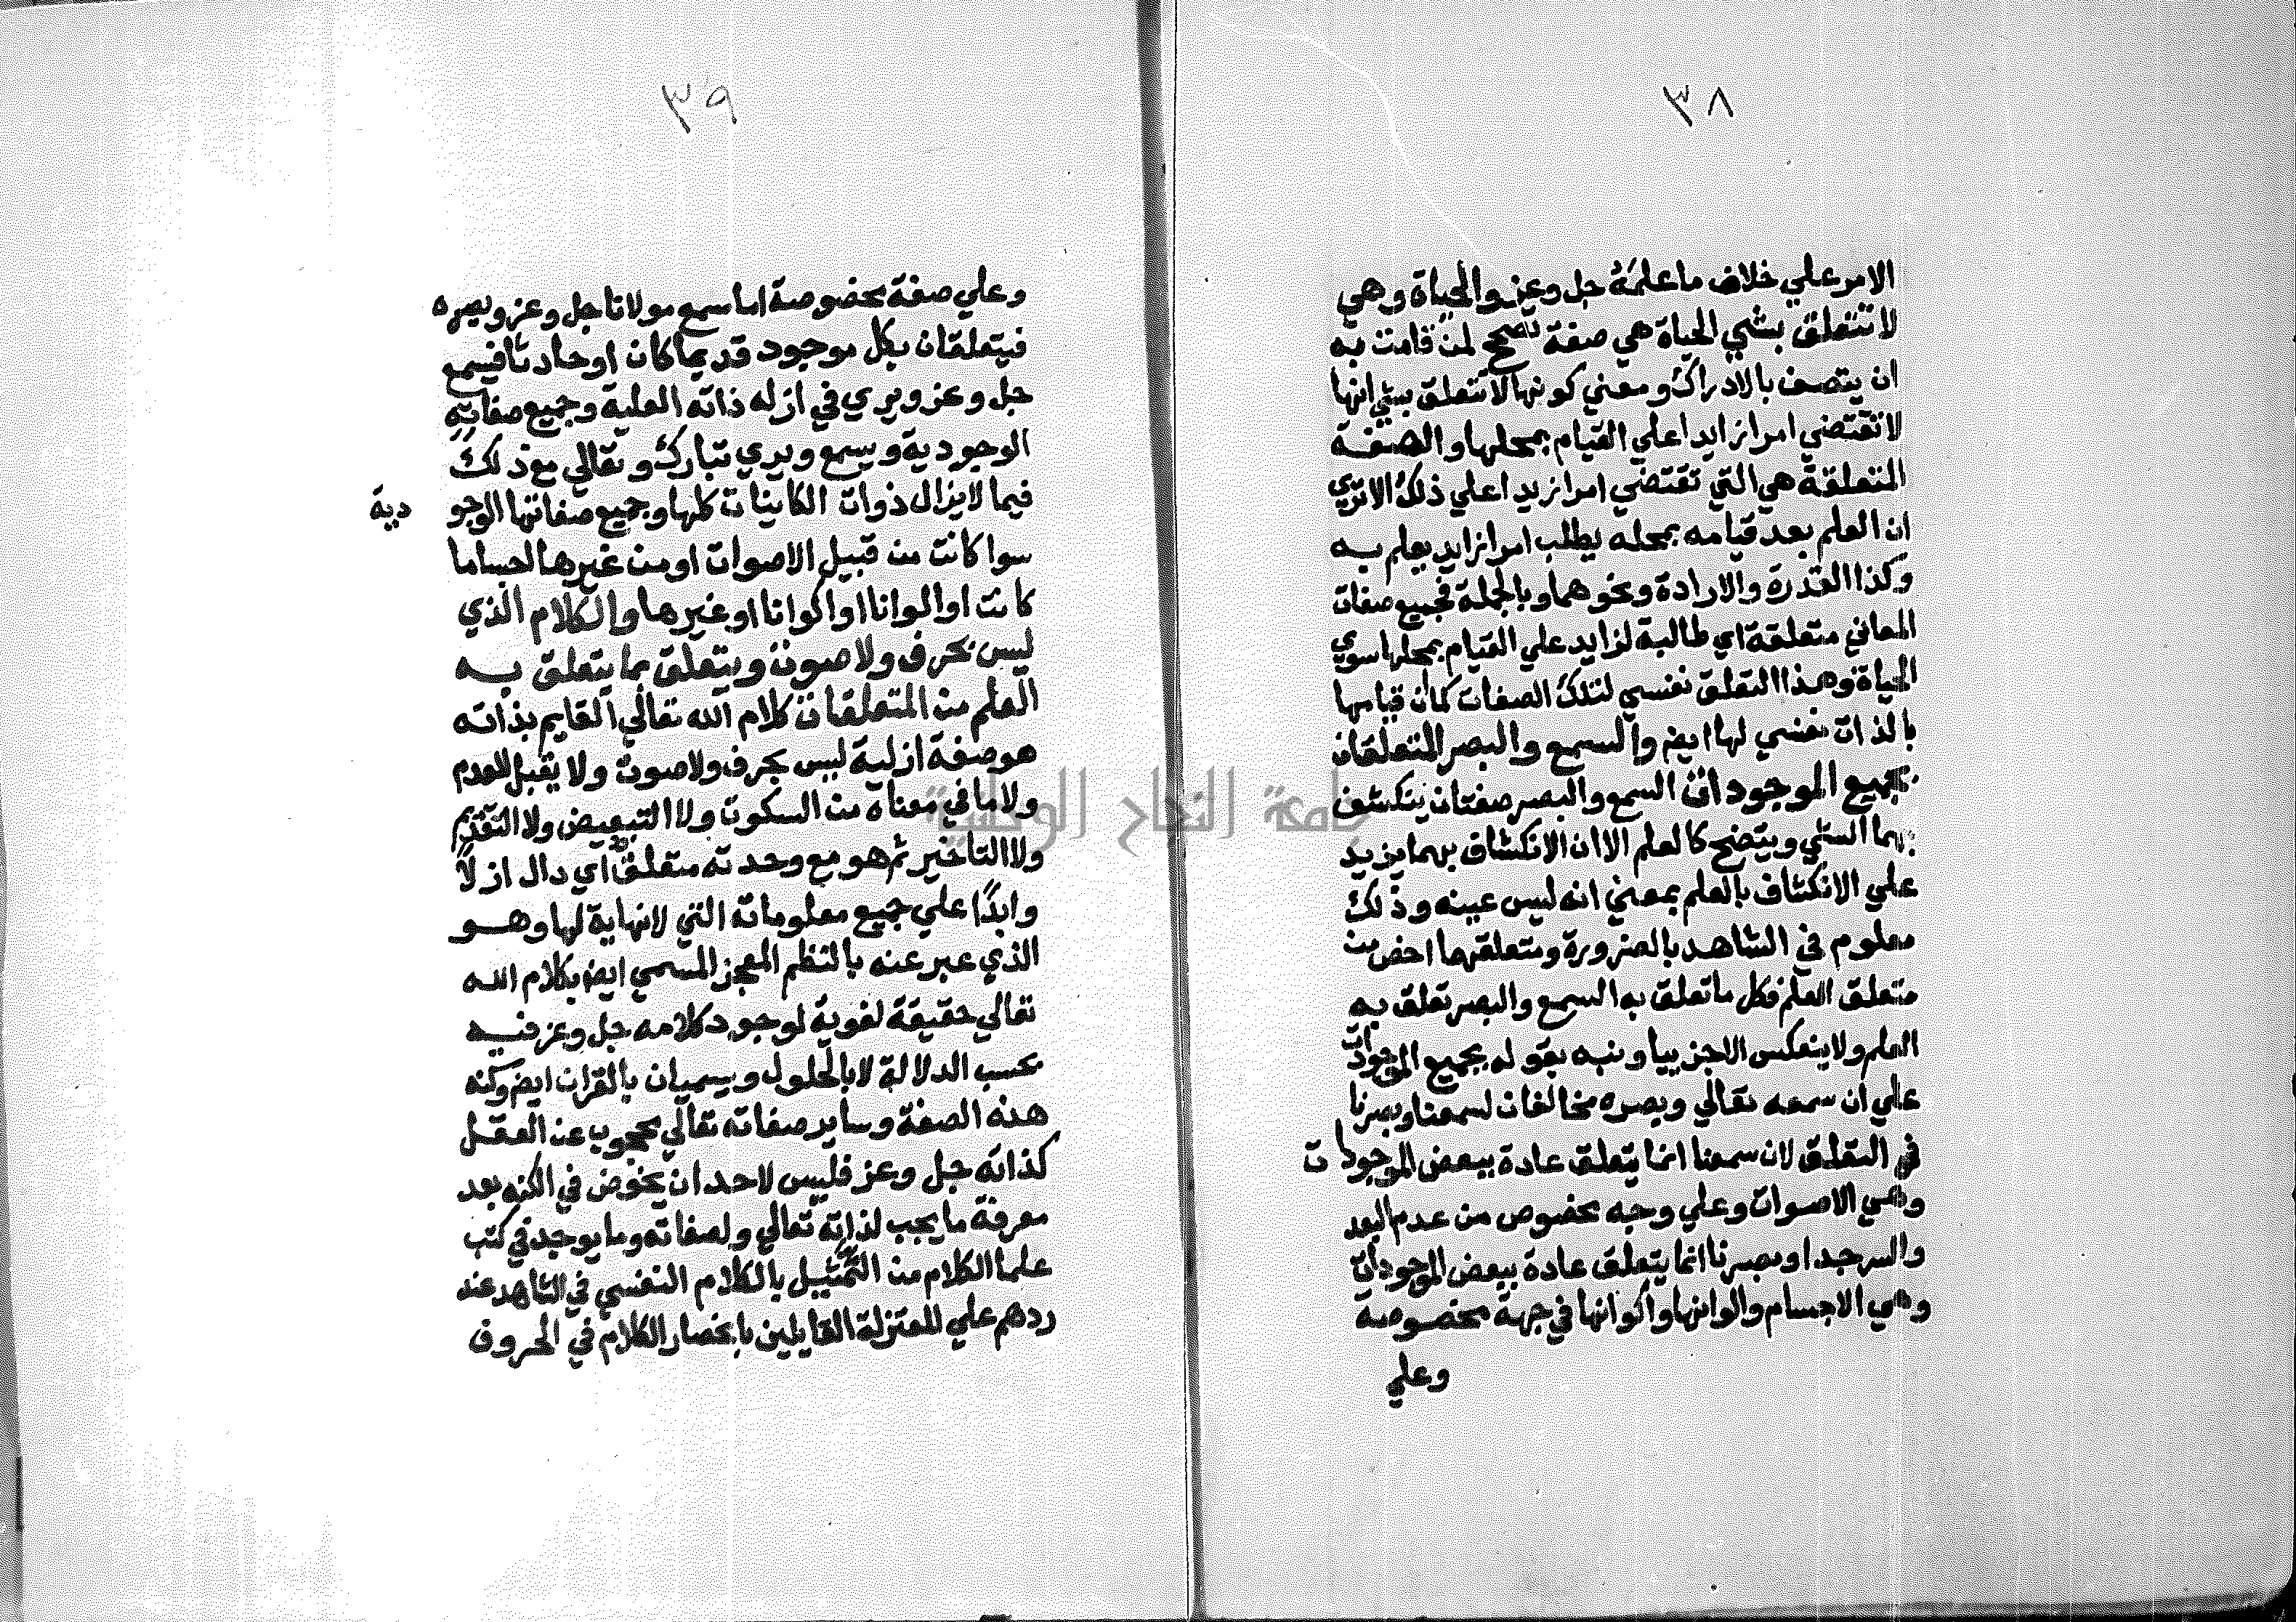 ٣٨
الامر علي خلاف ما علمه جل وعز والحياة وهي
لا تتعلق بشي الحياة هي صفة تصحح لمن قامت به
ان يتصف بالادراك ومعني كونها لا تتعلق بشي انها
لا تقتضي امرا زايدا علي القيام بمحلها والصفة
المتعلقة هي التي تقتضي امرا زيدا علي ذلك الا تري
ان العلم بعد قيامه بمحله يطلب امرا زايد يعلم به
وكذا القدرة والارادة ونحوهما وبالجملة فجميع صفات
المعاني متعلقة اي طالبة لزايد علي القيام بمحلها سوي
الحياة وهذا التعلق نفسي لتلك الصفات كما ان قيامها
بالذات نفسي لها ايض والسمع والبصر المتعلقان
بجميع الموجودات السمع والبصر صفتان ينكشف
بهما الشي ويتضح كالعلم الا ان الانكشاف بهما يزيد
علي الانكشاف بالعلم بمعني انه ليس عينه وذلك
معلوم في الشاهد بالضرورة ومتعلقهما اخص من
متعلق العلم فكل ما تعلق به السمع والبصر تعلق به
العلم ولا ينعكس الا جزييا ونبه بقوله بجميع الموجودات
علي ان سمعه تعالي وبصره مخالفان لسمعنا وبصرنا
في التعلق لان سمعنا انما يتعلق عادة ببعض الموجودات
وهي الاصوات وعلي وجه مخصوص من عدم البعد
والسر جدا وبصرنا انما يتعلق عادة ببعض الموجودات
وهي الاجسام والوانها واكوانها في جهة مخصوصة
وعلي
٣٩
وعلي صفة مخضوصة اما سمع مولانا جل وعز وبصره
فيتعلقان بكل موجود قديما كان او حادثا فيسمع
جل وعز ويري في ازله ذاته العلية وجميع صفاته
الوجودية ويسمع ويري تبارك وتعالي مع ذلك
فيما لا يزال ذوات الكاينات كلها وجميع صفاتها الوجو دية
سوا كانت من قبيل الاصوات او من غيرها اجساما
كانت او الوانا او اكوانا او غيرها والكلام الذي
ليس بحرف ولا صوت ويتعلق بما يتعلق به
العلم من المتعلقات كلام الله تعالي القايم بذاته
هو صفة ازلية ليس بحرف ولا صوت ولا يقبل العدم
ولا ما في معناه من السكوت ولا التبعيض ولا التقديم
ولا التاخير ثم هو مع وحدته متعلق اي دال ازلاً
وابدًا علي جميع معلوماته التي لا نهاية لها وهو
الذي عبر عنه بالنظم المعجز المسمي ايض بكلام الله
تعالي حقيقة لغوية لوجود كلامه جل وعز فيه
بحسب الدلالة لا بالحلول ويسميان بالقران ايض وكنه
هذه الصفة وساير صفاته تعالي محجوب عن العقل
كذاته جل وعز فليس لاحد ان يخوض في الكنه بعد
معرفة ما يجب لذاته تعالي ولصفاته وما يوجد في كتب
علما الكلام من التمثيل بالكلام النفسي في الشاهد عند
ردهم علي المعتزلة القايلين بانحصار الكلام في الحروف
جامعة النجاح الوطنية